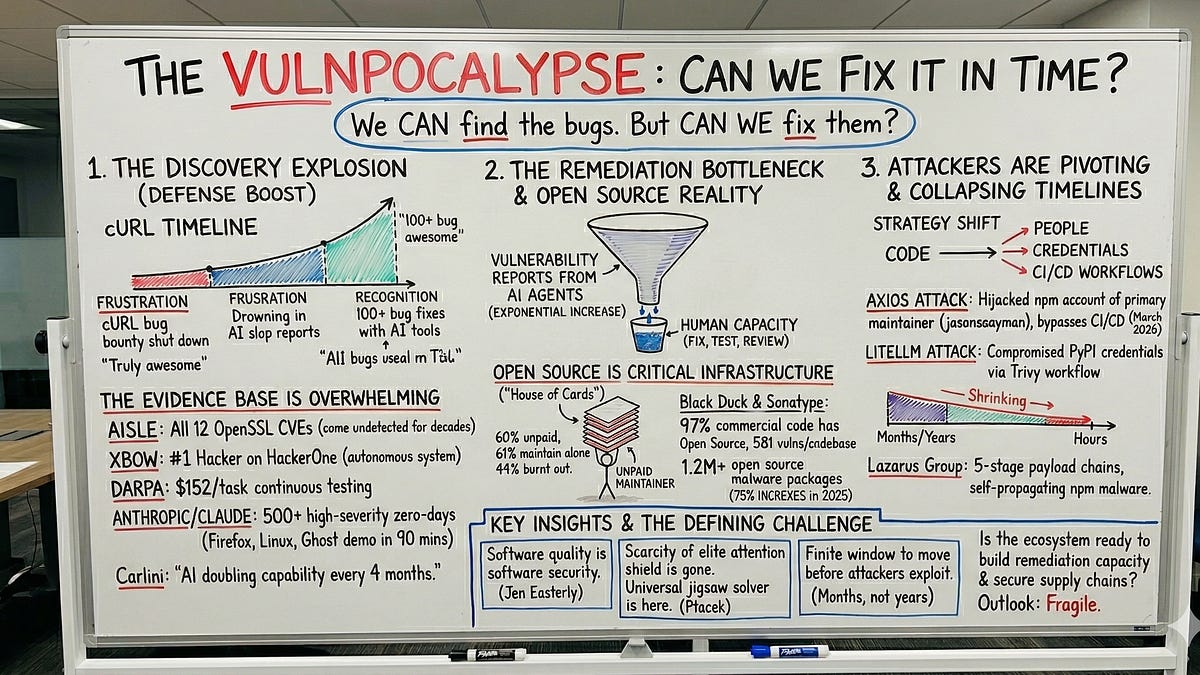 THE VULNPOCALYPSE: CAN WE FIX IT IN TIME?
We CAN find the bugs. But CAN WE fix them?
1. THE DISCOVERY EXPLOSION
(DEFENSE BOOST)
cURL TIMELINE
"100+ bug
awesome"
FRUSTRATION
cURL bug
bounty shut down
"Truly awesome"
FRUSRATION
Drowning in
AI slop reports
RECOGNITION
100+ bug fixes
with AI tools
"All bugs
THE EVIDENCE BASE IS OVERWHELMING
AISLE: All 12 OpenSSL CVEs (come undetected for decades)
XBOW: #1 Hacker on HackerOne (autonomous system)
DARPA: $152/task continuous testing
ANTHROPIC/CLAUDE: 500+ high-severity zero-days
(Firefox, Linux, Ghost demo in 90 mins)
Carlini: "AI doubling capability every 4 months."
2. THE REMEDIATION BOTTLENECK
& OPEN SOURCE REALITY
VULNERABILITY
REPORTS FROM
AI AGENTS
(EXPONENTIAL INCREASE)
HUMAN CAPACITY
(FIX, TEST, REVIEW)
OPEN SOURCE IS CRITICAL INFRASTRUCTURE
("House of Cards")
60% unpaid,
61% maintain alone
44% burnt out.
UNPAID
MAINTAINER
Black Duck & Sonatype:
97% commercial code has
Open Source, 581 vulns/cndebase
1.2M+ open source
malware packages
(75% INCREXES in 2025)
3. ATTACKERS ARE PIVOTING
& COLLAPSING TIMELINES
STRATEGY SHIFT
CODE
PEOPLE
CREDENTIALS
CI/CD WORKFLOWS
AXIOS ATTACK: Hijacked npm account of primary
maintainer (jasonssayman), bypasses CI/CD (March
2026)
LITELLM ATTACK: Compromised PyPI credentials
via Trivy workflow
Shrinking
Months/Years
Hours
Lazarus Group: 5-stage payload chains,
self-propagating npm malware.
KEY INSIGHTS & THE DEFINING CHALLENGE
Software quality is
software security.
(Jen Easterly)
Scarcity of elite attention
shield is gone.
Universal jigsaw solver
is here. (Ptacek)
Finite window to move
before attackers exploit.
(Months, not years)
Is the ecosystem ready to
build remediation capacity
& secure supply chains?
Outlook: Fragile.